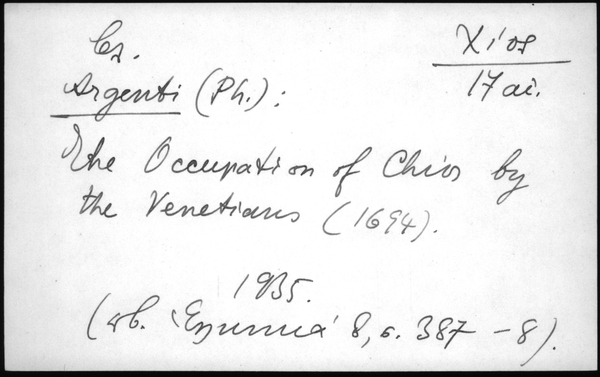 Χίος
17 αι.
Argenti (Ph.):
The Occupation of Chios by
the Venetians (1694).
1935.
8, σ. 387-8).